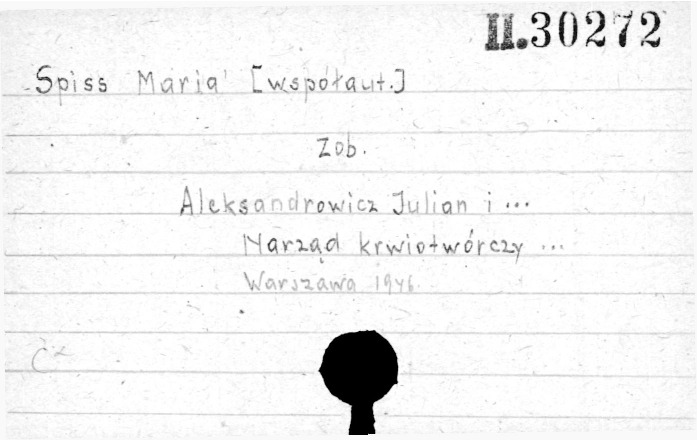 II.30272
Spiss Maria [współaut.]
Zob.
Aleksandrowicz Julian i ...
Narząd krwiotwórczy ...
Warszawa 1946.